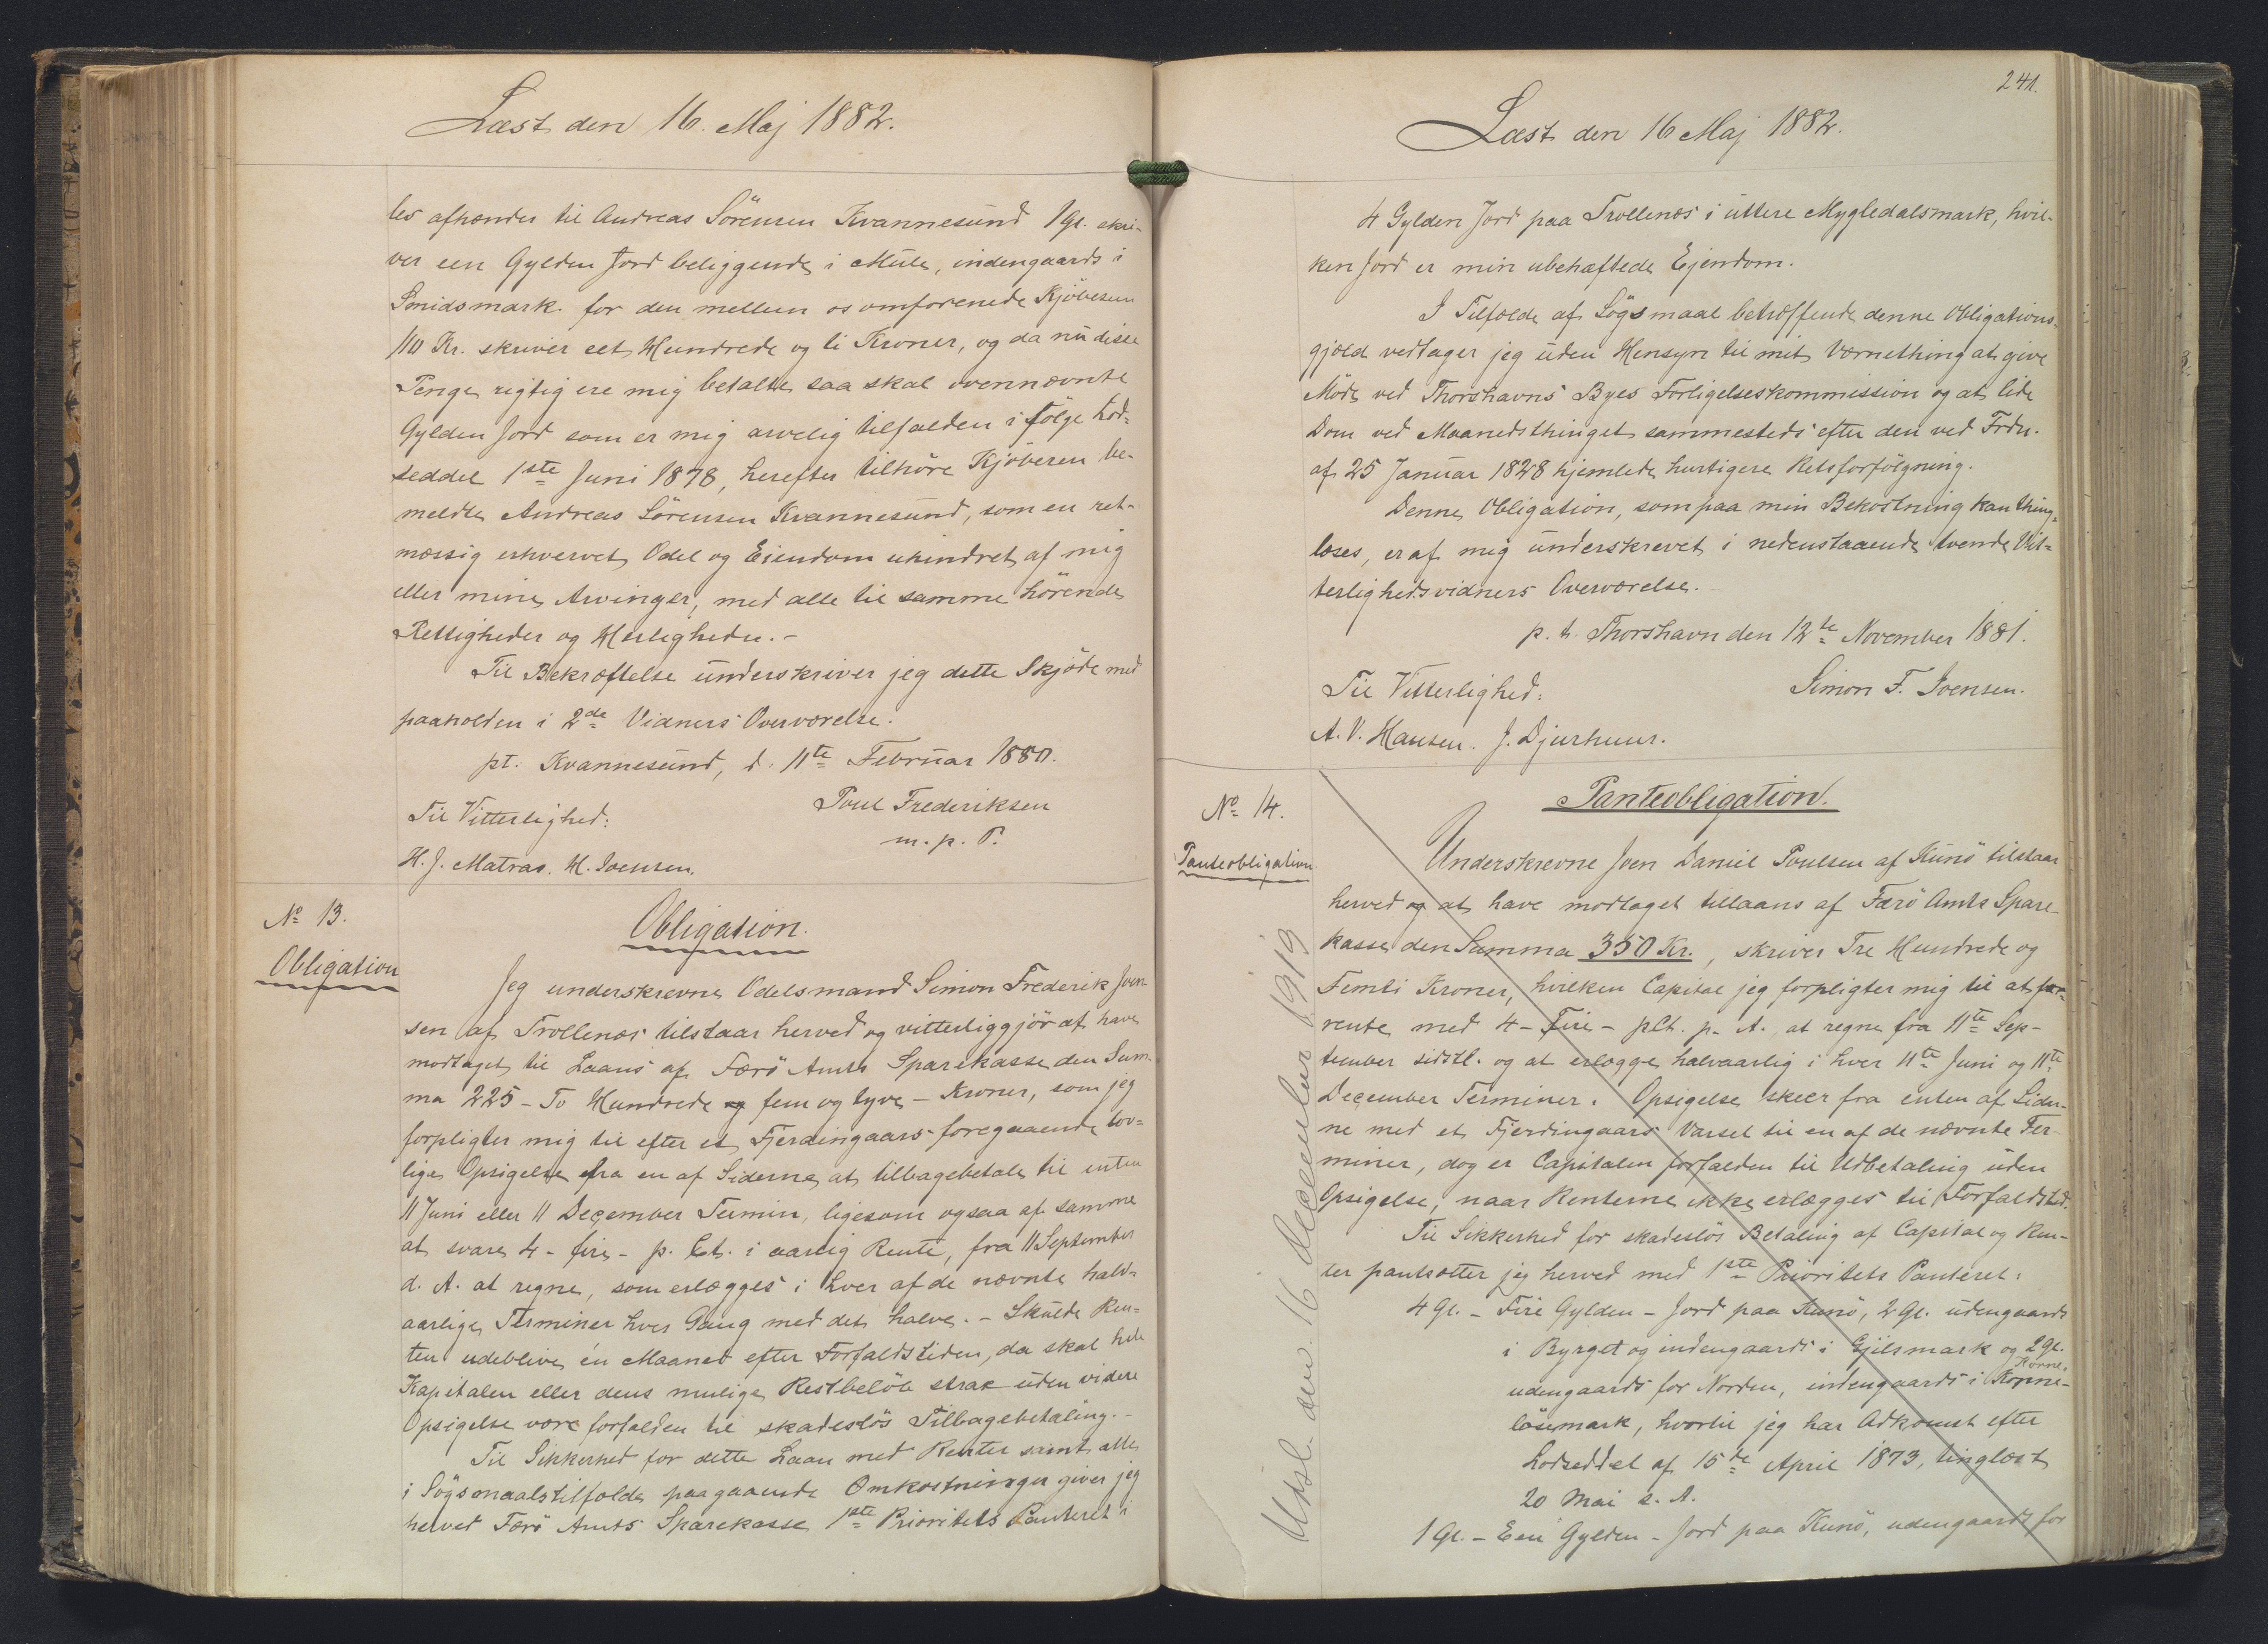 Læst den 16. Maj 1882.
les afhænder til Andreas Sörensen Kvannesund 1 Gl. skri-
ver een Gylden Jord beliggende i Mule, indengaards i
Smidsmark for den mellem os omforenede Kjöbesum
110 Kr. skriver eet Hundrede og ti Kroner, og da nu disse
Penge rigtig ere mig betalte saa skal ovennævnte
Gylden Jord som er mig arvelig tilfalden i fölge Lod-
seddel 1ste Juni 1878, herefter tilhöre Kjöberen be-
meldte Andreas Sörensen Kvannesund, som en ret-
mæssig erhvervet Odel og Eiendom uhindret af mig
eller mine Arvinger, med alle til samme hörende
Rettigheder og Herligheder. -
Til Bekræftelse underskriver jeg dette Skjöde med
paaholden i 2de Vidners Overværelse.
pt. Kvannesund, d. 11te Februar 1880.
Poul Frederiksen
m. p. P.
Til Vitterlighed:
H. J. Matras. H. Joensen.
No 13.
Obligation
Obligation.
Jeg underskrevne Odelsmand Simon Frederik Joen-
sen af Trollenæs tilstaar herved og vitterliggjör at have
modtaget til Laans af Færö Amts Sparekasse den Sum-
ma 225 - To Hundrede og fem og tyve - Kroner, som jeg
forpligter mig til efter et Fjerdingaars foregaaende lov-
lige Opsigelse fra en af Siderne at tilbagebetale til enten
11 Juni eller 11 December Termin, ligesom ogsaa af samme
at svare 4 - fire - p. Ct. i aarlig Rente, fra 11 September
d. A. at regne, som erlægges i hver af de nævnte halv-
aarlige Terminer hver Gang med det halve. - Skulde Ren-
ten udeblive én Maaned efter Forfaldstiden, da skal hele
Kapitalen eller dens mulige Restbelöb strax uden videre
Opsigelse være forfalden til skadeslös Tilbagebetaling. -
Til Sikkerhed for dette Laan med Renter samt alle
i Sögsmaalstilfælde paagaaende Omkostninger giver jeg
herved Færö Amts Sparekasse 1ste Prioritets Panteret i
241.
Læst den 16 Maj 1882.
4 Gylden Jord paa Trollenæs i uttere Mygledalsmark, hvil-
ken Jord er min ubehæftede Ejendom.
I Tilfælde af Sögsmaal betræffende denne Obligations-
gjæld vedtager jeg uden Hensyn til mit Værnething at give
Möde ved Thorshavns Byes Forligelseskommission og at lide
Dom ved Maanedsthinget sammesteds efter den ved Frdn.
af 25 Januar 1828 hjemlede hurtigere Retsforfölgning.
Denne Obligation, som paa min Bekostning kan thing-
læses, er af mig underskrevet i nedenstaaende tvende Vit-
terlighedsvidners Overværelse. -
p. t. Thorshavn den 12te November 1881.
Simon F. Joensen.
Til Vitterlighed:
A. V. Hansen. J. Djurhuus.
No 14.
Panteobligation
Panteobligation.
Underskrevne Joen Daniel Poulsen af Kunö tilstaar
herved og at have modtaget tillaans af Færö Amts Spare-
kasse den Summa 350 Kr., skriver Tre Hundrede og
Femti Kroner, hvilken Capital jeg forpligter mig til at for-
rente med 4 - Fire - pCt. p. A. at regne fra 11te Sep-
tember sidstl. og at erlægge halvaarlig i hver 11te Juni og 11te
December Terminer. Opsigelse skeer fra enten af Sider-
ne med et Fjerdingaars Varsel til en af de nævnte Ter-
miner, dog er Capitalen forfalden til Udbetaling uden
Opsigelse, naar Renterne ikke erlægges til Forfaldstid.
Til Sikkerhed for skadeslös Betaling af Capital og Ren-
ter pantsætter jeg herved med 1ste Prioritets Panteret:
4 Gl. - Fire Gylden - Jord paa Kunö, 2 Gl. udengaards
i Byrget og indengaards i Gjilsmark og 2 Gl.
Korne-
udengaards for Norden, indengaards i Korne-
lösemark, hvortil jeg har Adkomst efter
Lodseddel af 15de April 1873, tinglæst
20 Mai s. A.
1 Gl. - Een Gylden - Jord paa Kunö, udengaards for
Udsl. den 16 December 1919